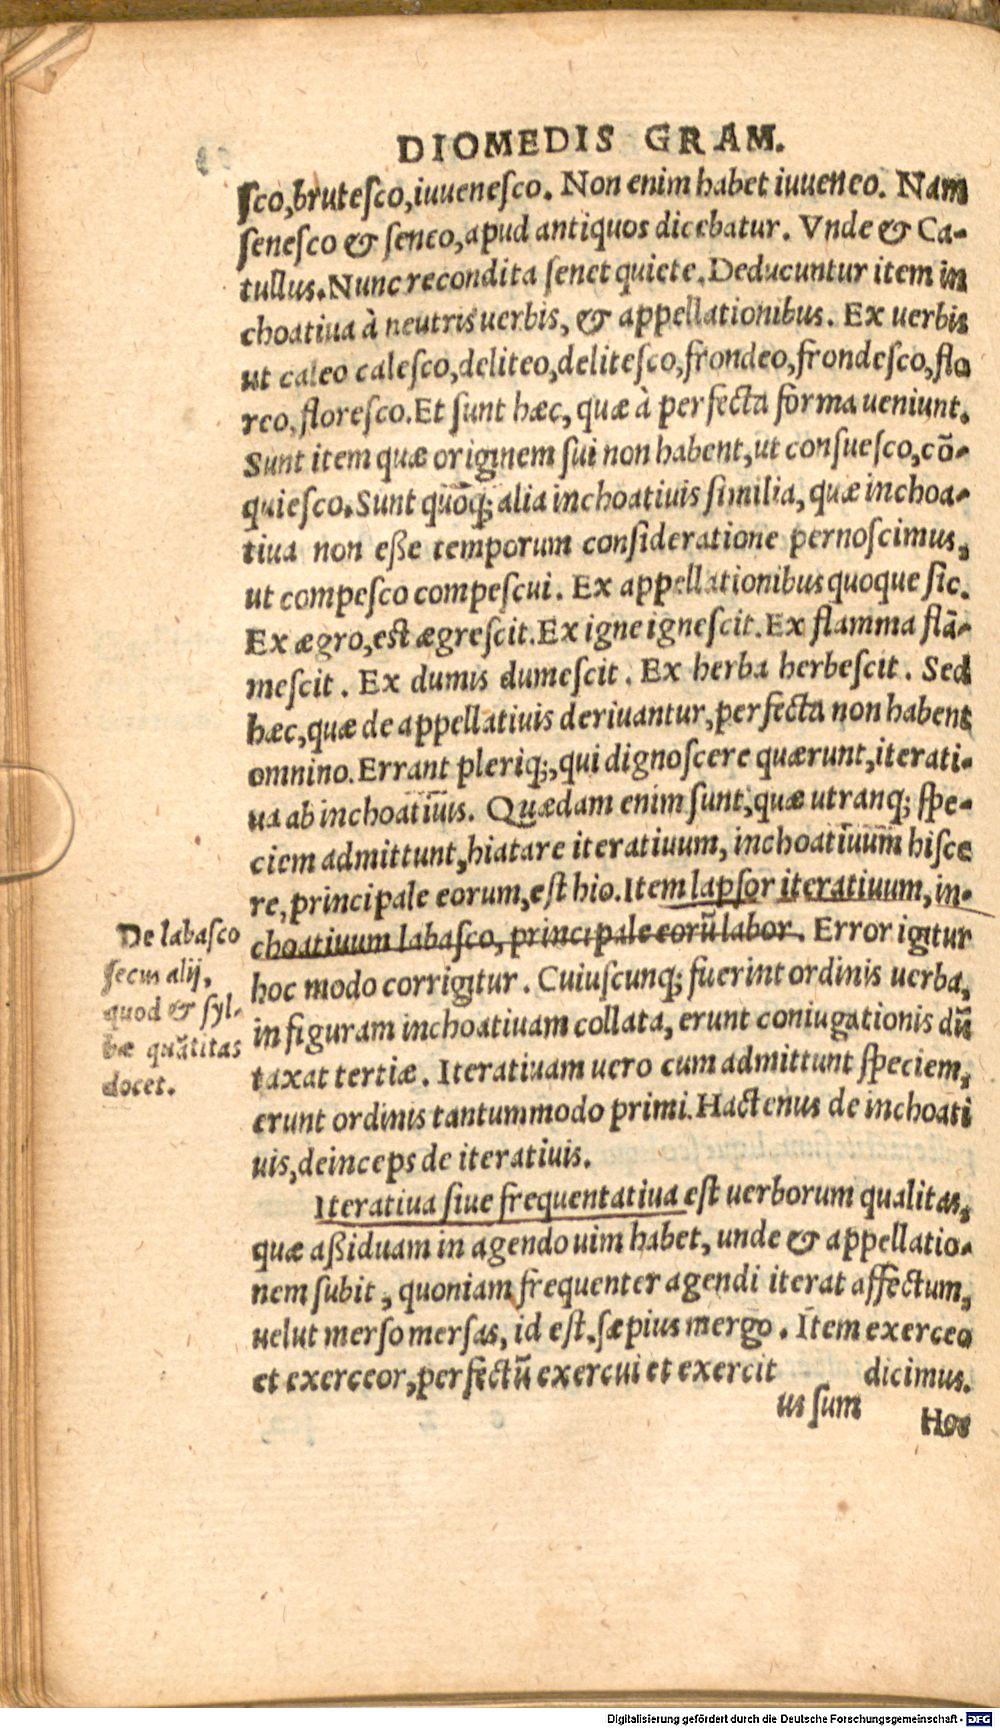 DIOMEDIS GRAM.
ſco, bruteſco, iuueneſco. Non enim habet iuueneo. Nam
ſeneſco & ſeneo, apud antiquos dicebatur. Vnde & Ca-
tullus. Nunc recondita ſenet quiete. Deducuntur item in
choatiua à neutris uerbis, & appellationibus. Ex uerbis
ut caleo caleſco, deliteo, deliteſco, frondeo, frondeſco, flo
reo, floreſco. Et ſunt hæc, quæ à perfecta forma ueniunt.
Sunt item quæ originem ſui non habent, ut conſueſco, cō-
quieſco. Sunt quoq; alia inchoatiuis ſimilia, quæ inchoa-
tiua non eſße temporum conſideratione pernoſcimus,
ut compeſco compeſcui. Ex appellationibus quoque ſic.
Ex ægro, eſt ægreſcit. Ex igne igneſcit. Ex flamma flā-
meſcit. Ex dumis dumeſcit. Ex herba herbeſcit. Sed
hæc, quæ de appellatiuis deriuantur, perfecta non habent
omnino. Errant pleriq;, qui dignoſcere quærunt, iterati-
ua ab inchoatiuis. Quædam enim ſunt, quæ utranq; ſpe-
ciem admittunt, hiatare iteratiuum, inchoatiuum hiſce
re, principale eorum, eſt hio. Item lapſor iteratiuum, in-
choatiuum labaſco, principale eorū labor. Error igitur
hoc modo corrigitur. Cuiuſcunq; fuerint ordinis uerba,
in figuram inchoatiuam collata, erunt coniugationis dū
taxat tertiæ. Iteratiuam uero cum admittunt ſpeciem,
erunt ordinis tantummodo primi. Hactenus de inchoati
uis, deinceps de iteratiuis.
De labaſco
ſecus alij,
quod & ſyl-
bæ quātitas
docet.
Iteratiua ſiue frequentatiua eſt uerborum qualitas,
quæ aßiduam in agendo uim habet, unde & appellatio-
nem ſubit, quoniam frequenter agendi iterat affectum,
uelut merſo merſas, id eſt, ſæpius mergo. Item exerceo
et exerceor, perfectū exercui et exercit dicimus.
us ſum
Hos
Digitalisierung gefördert durch die Deutsche Forschungsgemeinschaft - DFG